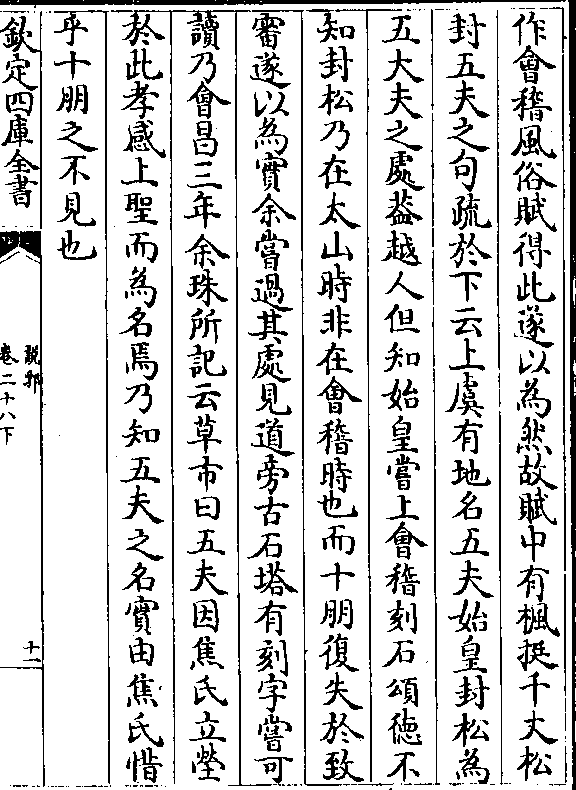 作會稽風俗賦得此遂以為然故賦中有楓挺千丈松
封五夫之句疏於下云上虞有地名五夫始皇封松為
五大夫之處葢越人但知始皇嘗上會稽刻石頌徳不
知封松乃在太山時非在會稽時也而十朋復失於致
審遂以為實余嘗過其處見道旁古石塔有刻字嘗可
讀乃會昌三年余珠所記云草市曰五夫因焦氏立塋
於此孝感上聖而為名焉乃知五夫之名實由焦氏惜
乎十朋之不見也
欽定四庫全書
說郛
卷二十八下
十一